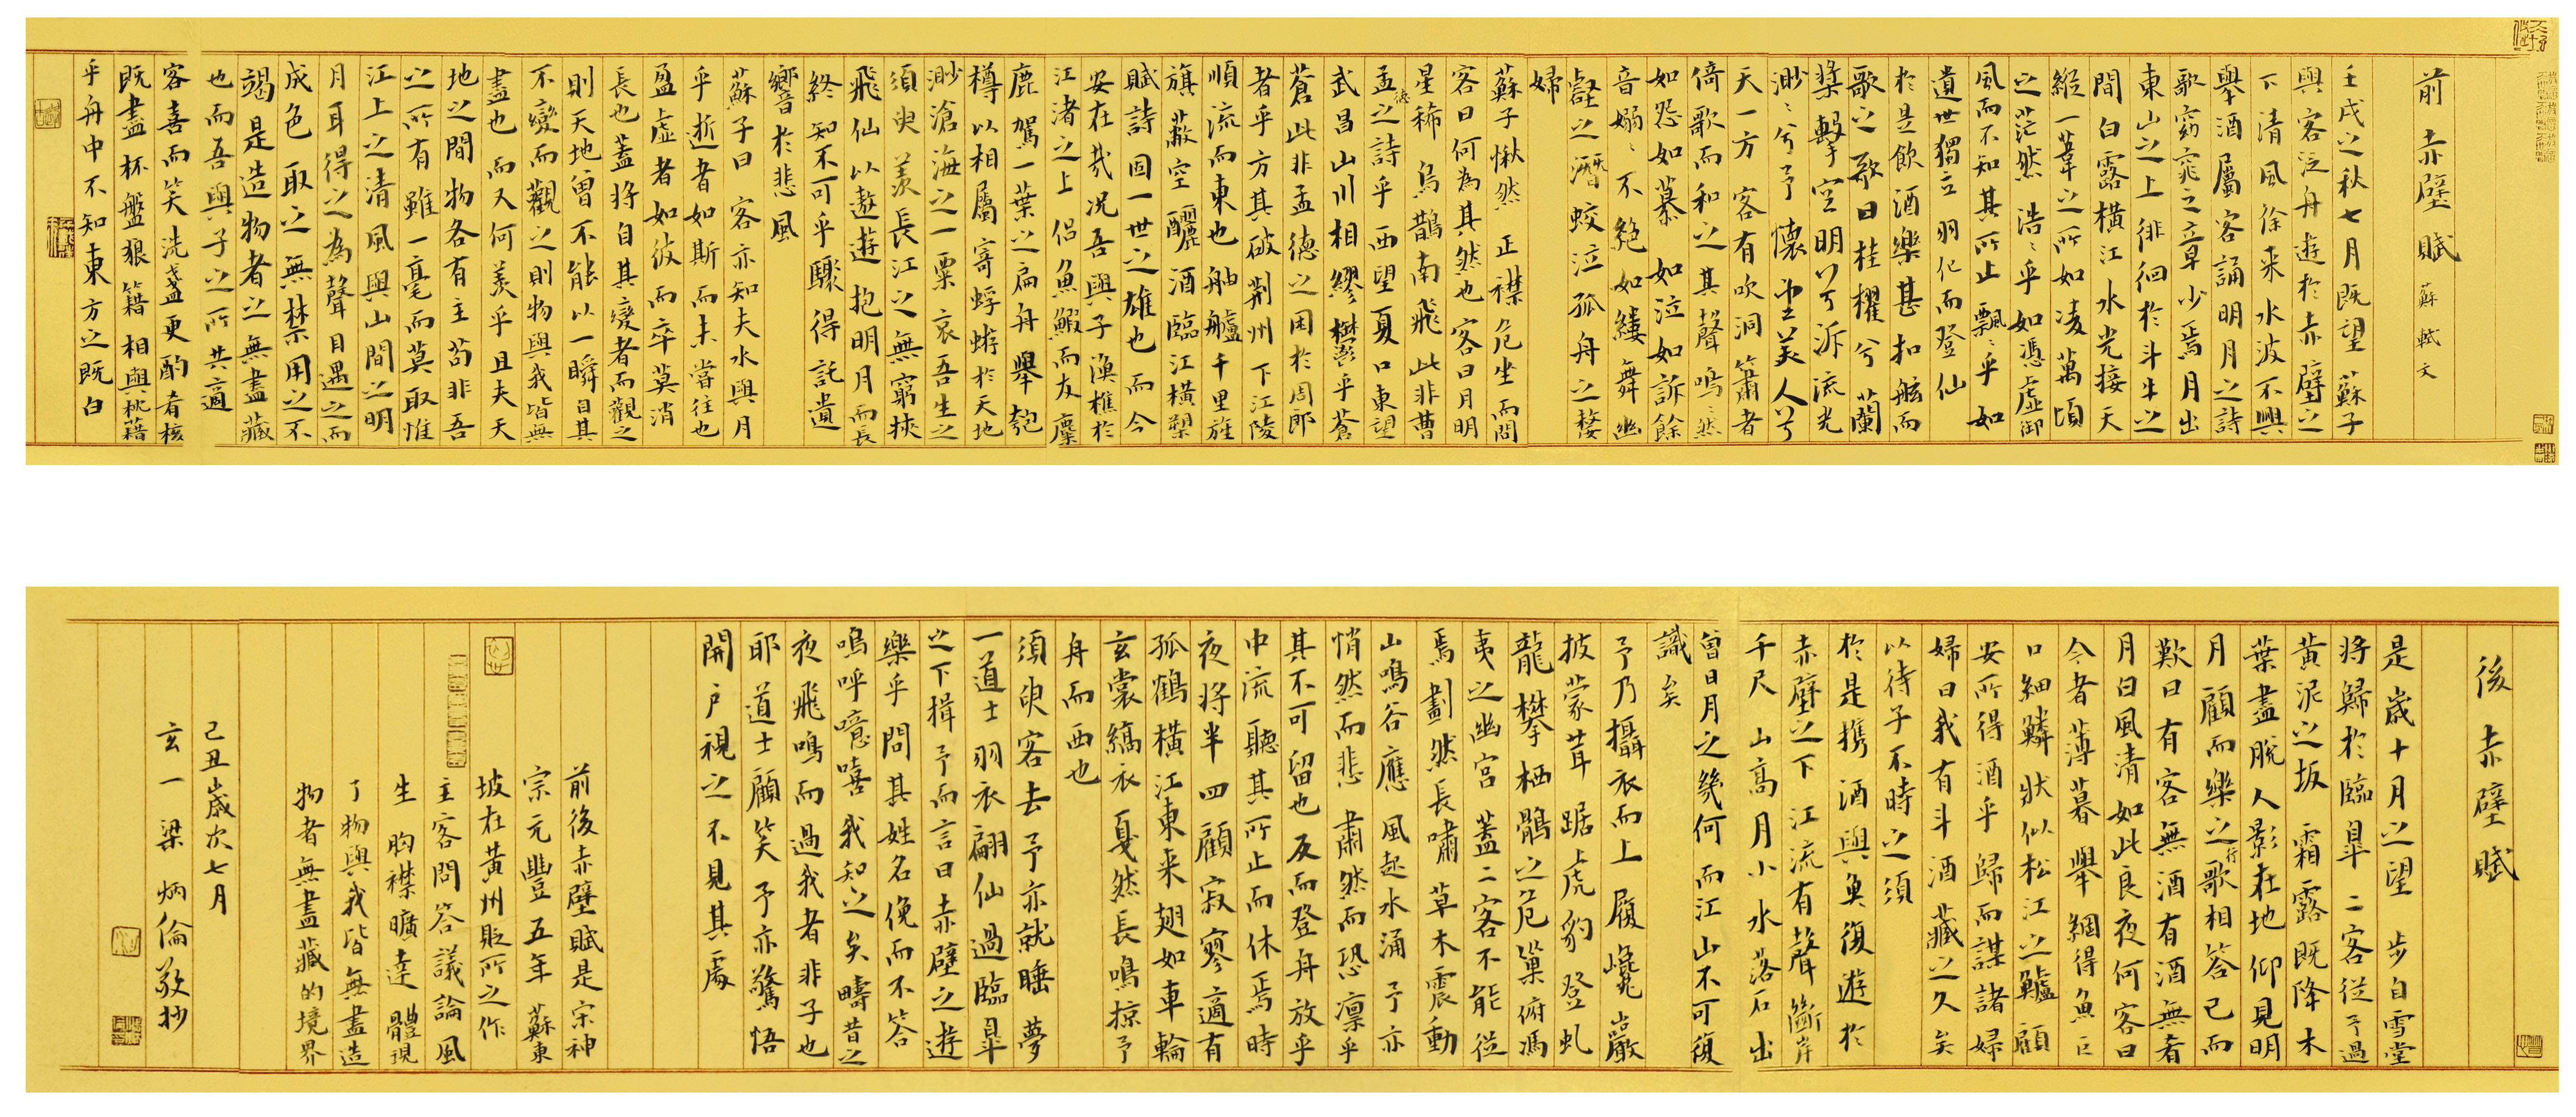 前赤壁賦 蘇軾文
壬戌之秋七月既望 蘇子
與客泛舟遊於赤壁之
下清風徐来水波不興
舉酒屬客誦明月之詩
歌窈窕之章少焉月出
東山之上徘徊於斗牛之
間白露橫江水光接天
縱一葦之所如凌萬頃
之茫然 浩〻乎如馮虛御
風而不知其所止飄〻乎如
遺世獨立 羽化而登仙
於是飲酒樂甚扣舷而
歌之歌曰桂櫂兮蘭
槳擊空明兮泝流光
渺〻兮予懷望美人兮
天一方 客有吹洞簫者
倚歌而和之其聲嗚然
如怨如慕 如泣如訴餘
音嫋〻不絕如縷舞幽
壑之潛蛟泣孤舟之嫠
婦
蘇子愀然 正襟危坐而問
客曰何為其然也客曰月明
星稀 烏鵲南飛 此非曹
孟德之詩乎西望夏口東望
武昌山川相繆鬱乎蒼
蒼此非孟德之困於周郎
者乎方其破荊州 下江陵
順流而東也舳艫千里旌
旗蔽空釃酒臨江橫槊
賦詩固一世之雄也而今
安在哉况吾與子漁樵於
江渚之上 侶魚鰕而友麋
鹿駕一葉之扁舟 舉匏
樽以相屬寄蜉蝣於天地
渺滄海之一粟哀吾生之
須臾 羨長江之無窮挾
飛仙以遨遊 抱明月而長
終 知不可乎驟得託遺
響於悲風
蘇子曰 客亦知夫水與月
乎逝者如斯而未嘗往也
盈虛者如彼而卒莫消
長也蓋將自其變者而觀之
則天地曾不能以一瞬自其
不變而觀之則物與我皆無
盡也 而又何羨乎且夫天
地之間物各有主苟非吾
之所有雖一毫而莫取惟
江上之清風與山間之明
月耳得之為聲目遇之而
成色 取之無禁用之不
竭是造物者之無盡藏
也而吾與子之所共適
客喜而笑洗盞更酌肴核
既盡杯盤狼籍 相與枕藉
乎舟中不知東方之既白
後赤壁賦
是歲十月之望 步自雪堂
將歸於臨皐 二客從予過
黃泥之坂 霜露既降木
葉盡脫人影在地仰見明
月 顧而樂之行歌相答已而
歎曰有客無酒有酒無肴
月白風清如此良夜何客曰
今者薄暮 舉網得魚巨
口細鱗狀似松江之鱸 顧
安所得酒乎歸而謀諸婦
婦曰我有斗酒 藏之久矣
以待子不時之須
於是携酒與魚復遊於
赤壁之下 江流有聲斷岸
千尺 山高月小水落石出
曾日月之幾何 而江山不可復
識矣
予乃攝衣而上 履巉巖
披蒙茸踞虎豹登虬
龍攀栖鶻之危巢俯馮
夷之幽宮 蓋二客不能從
焉劃然長嘯 草木震動
山鳴谷應風起水涌予亦
悄然而悲 肅然而恐凜乎
其不可留也反而登舟放乎
中流聽其所止而休焉時
夜將半四顧寂寥適有
孤鶴橫江東来翅如車輪
玄裳縞衣戛然長鳴掠予
舟而西也
須臾客去予亦就睡 夢
一道士羽衣翩仙 過臨皐
之下揖予而言曰赤壁之遊
樂乎問其姓名俛而不答
嗚呼噫嘻我知之矣疇昔之
夜飛鳴而過我者非子也
耶道士顧笑 予亦驚悟
開戶視之不見其處
前後赤壁賦是宋神
宗元豐五年 蘇東
坡在黃州貶所之作
主客問答議論風
生 胸襟曠達 體現
了物與我皆無盡造
物者無盡藏的境界
己丑歲次七月
玄一 梁炳倫敬抄